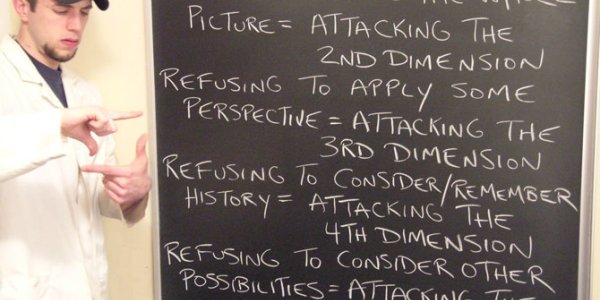 PICTURE = ATTACKING THE
2ND DIMENSION
REFUSING TO APPLY SOME
PERSPECTIVE = ATTACKING THE
3RD DIMENSION
REFUSING TO CONSIDER/REMEMBER
HISTORY = ATTACKING THE
4TH DIMENSION
REFUSING TO CONSIDER OTHER
POSSIBILITIES = ATTACKING